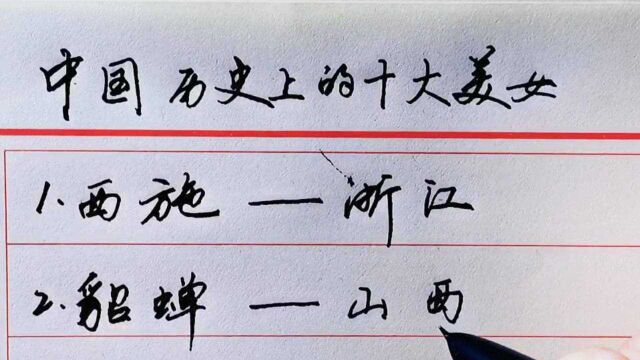 中国历史上的十大美女
1.西施 — 浙江
2.貂蝉 — 山西